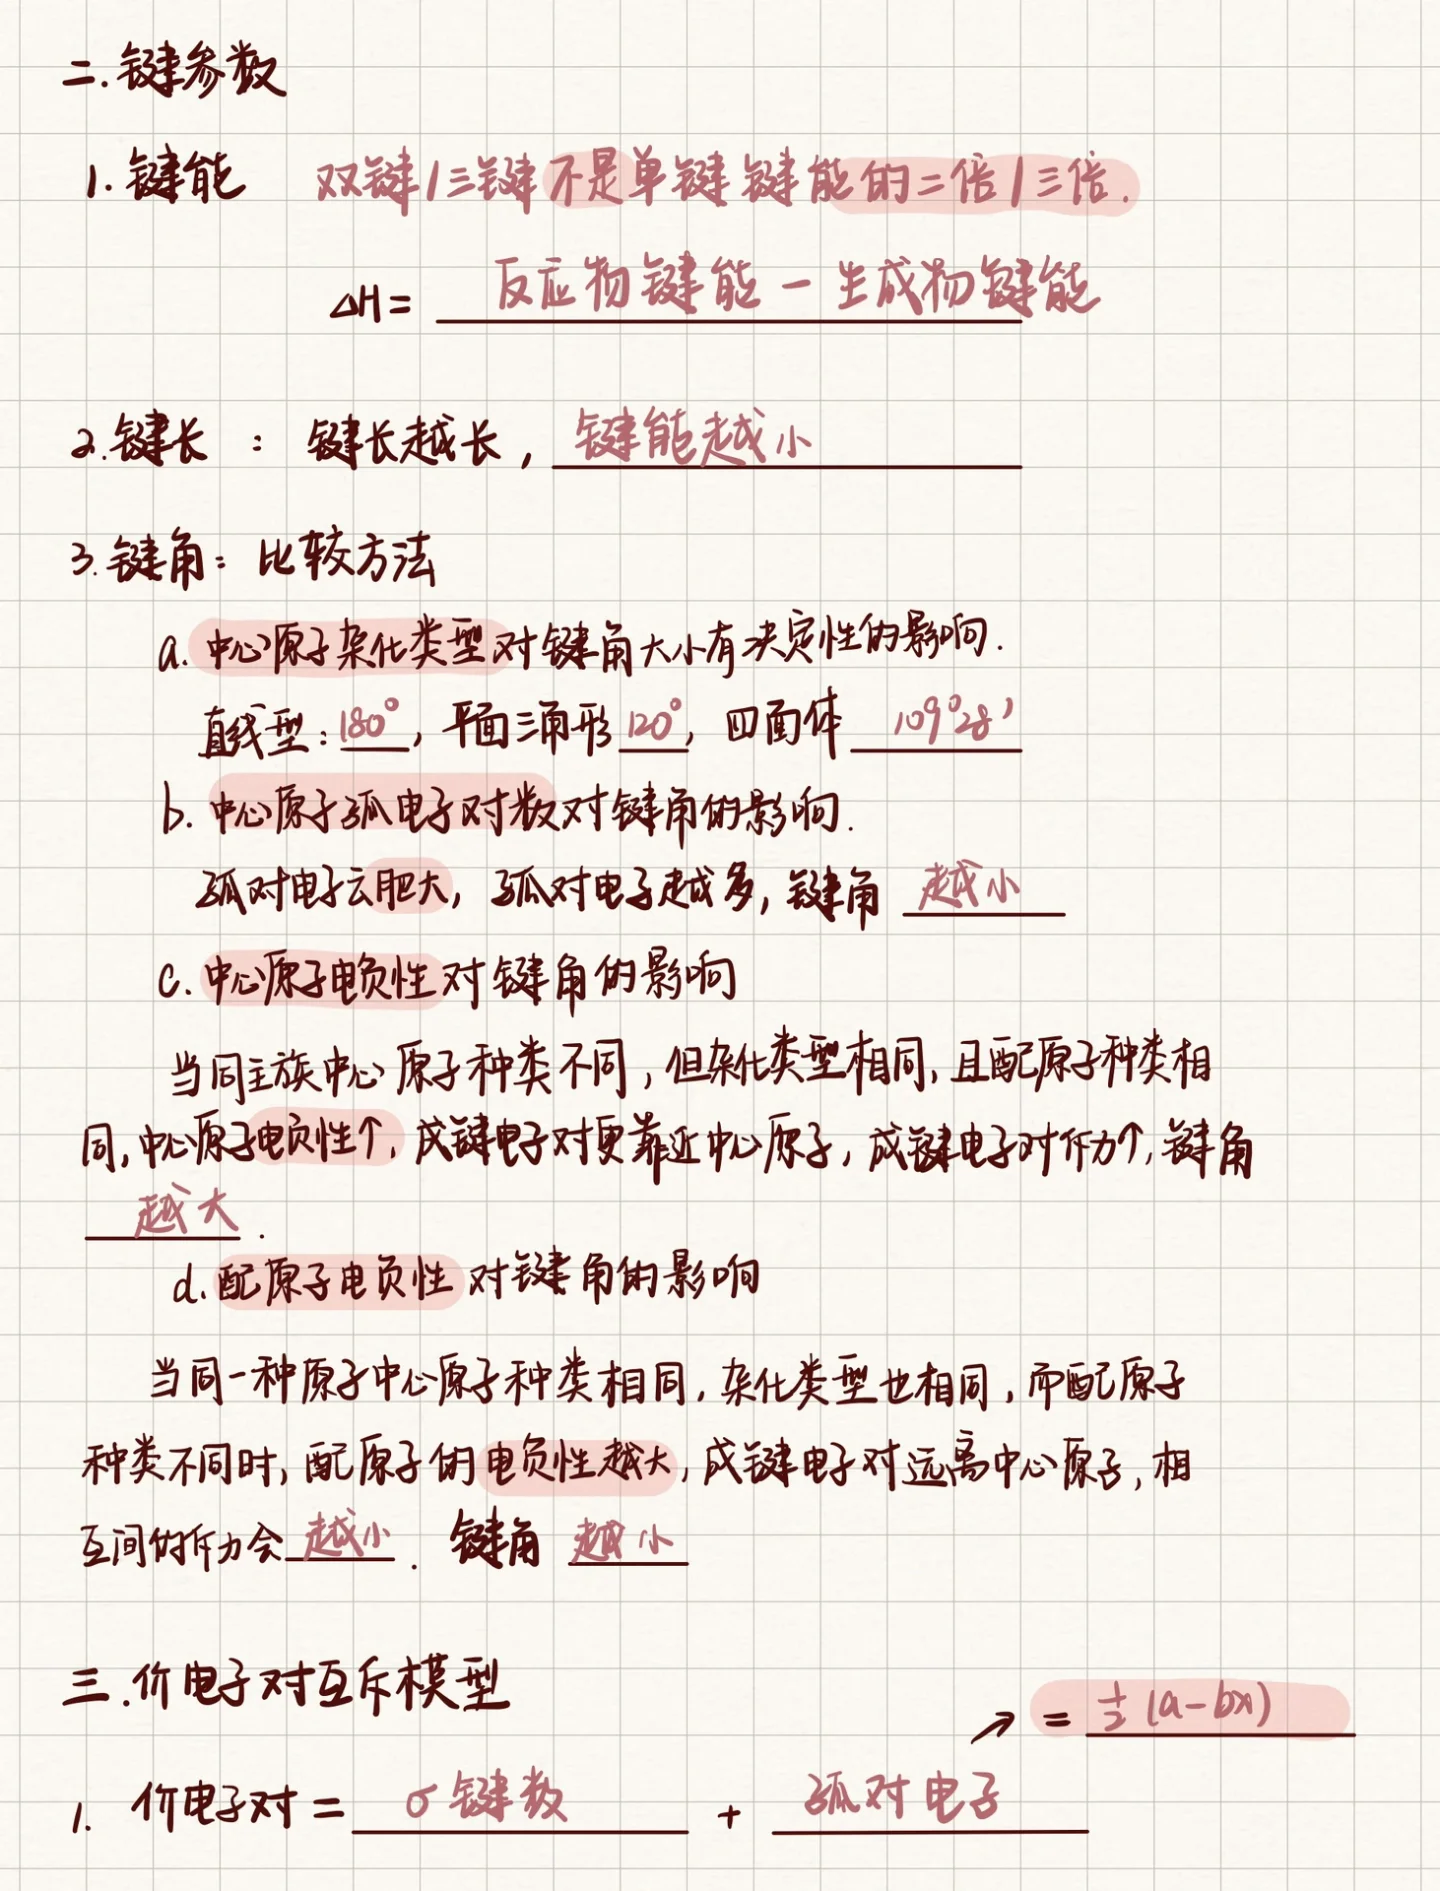 二.键参数
1.键能 双键/三键不是单键键能的二倍/三倍.
△H= 反应物键能-生成物键能
2.键长 : 键长越长, 键能越小
3.键角: 比较方法
a. 中心原子杂化类型对键角大小有决定性的影响.
直线型: 180°, 平面三角形 120°, 四面体 109°28'
b. 中心原子孤电子对数对键角的影响.
孤对电子云肥大, 孤对电子越多, 键角 越小
c. 中心原子电负性对键角的影响
当同主族中心原子种类不同, 但杂化类型相同, 且配原子种类相
同, 中心原子电负性个, 成键电子对更靠近中心原子, 成键电子对斥力个, 键角
越大.
d. 配原子电负性对键角的影响
当同一种原子中心原子种类相同, 杂化类型也相同, 而配原子
种类不同时, 配原子的电负性越大, 成键电子对远离中心原子, 相
互间的斥力会越小. 键角 越小
三.价电子对互斥模型
= 1/2 (a-bx)
1. 价电子对= σ键数 + 孤对电子